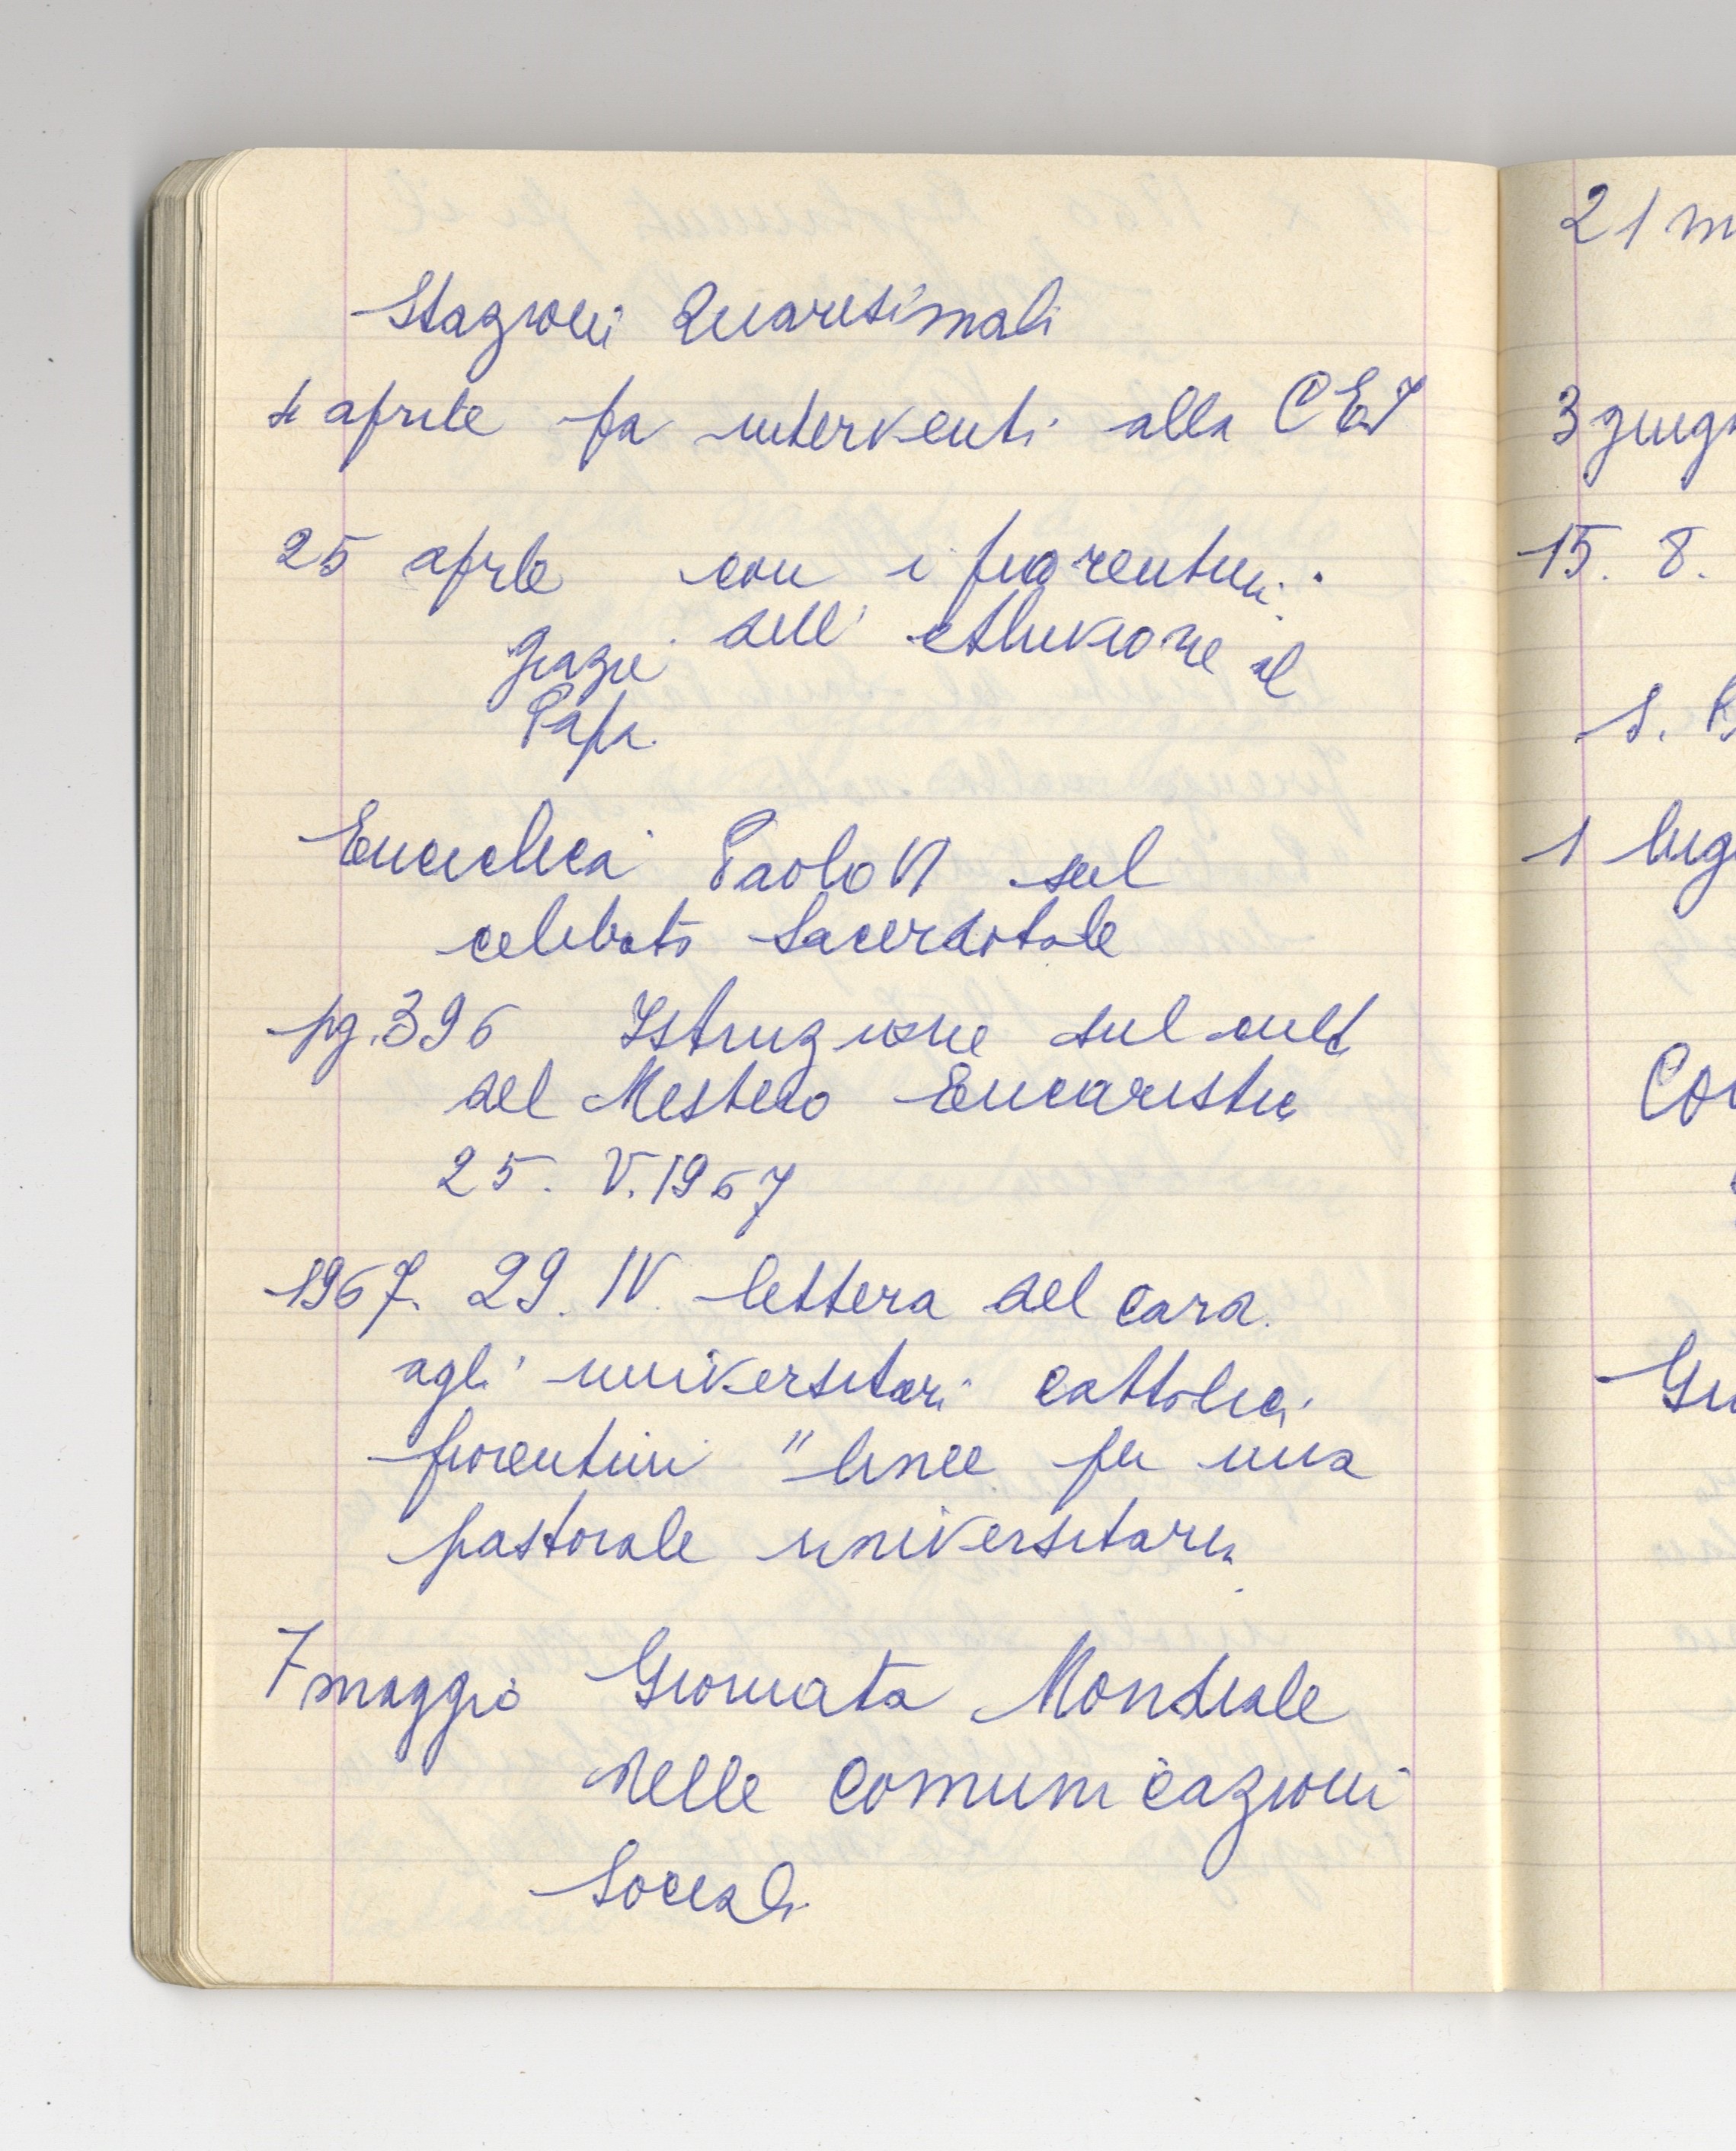 Stazioni Quaresimali
4 aprile fa interventi alla CEI
25 aprile con i fiorentini
dell' alluvione al
grazie
Papa.
Enciclica Paolo VI sul
celibato Sacerdotale
pg. 396 Istruzione sul cult
del Mistero Eucaristic
25. V. 1967
1967. 29. IV. lettera del card.
agli universitari cattolici
fiorentini "linee per una
pastorale universitaria
7 maggio Giornata Mondiale
delle Comunicazioni
Sociali
21 m
3 giugn
15. 8.
S.
1 lug
Co
Gi